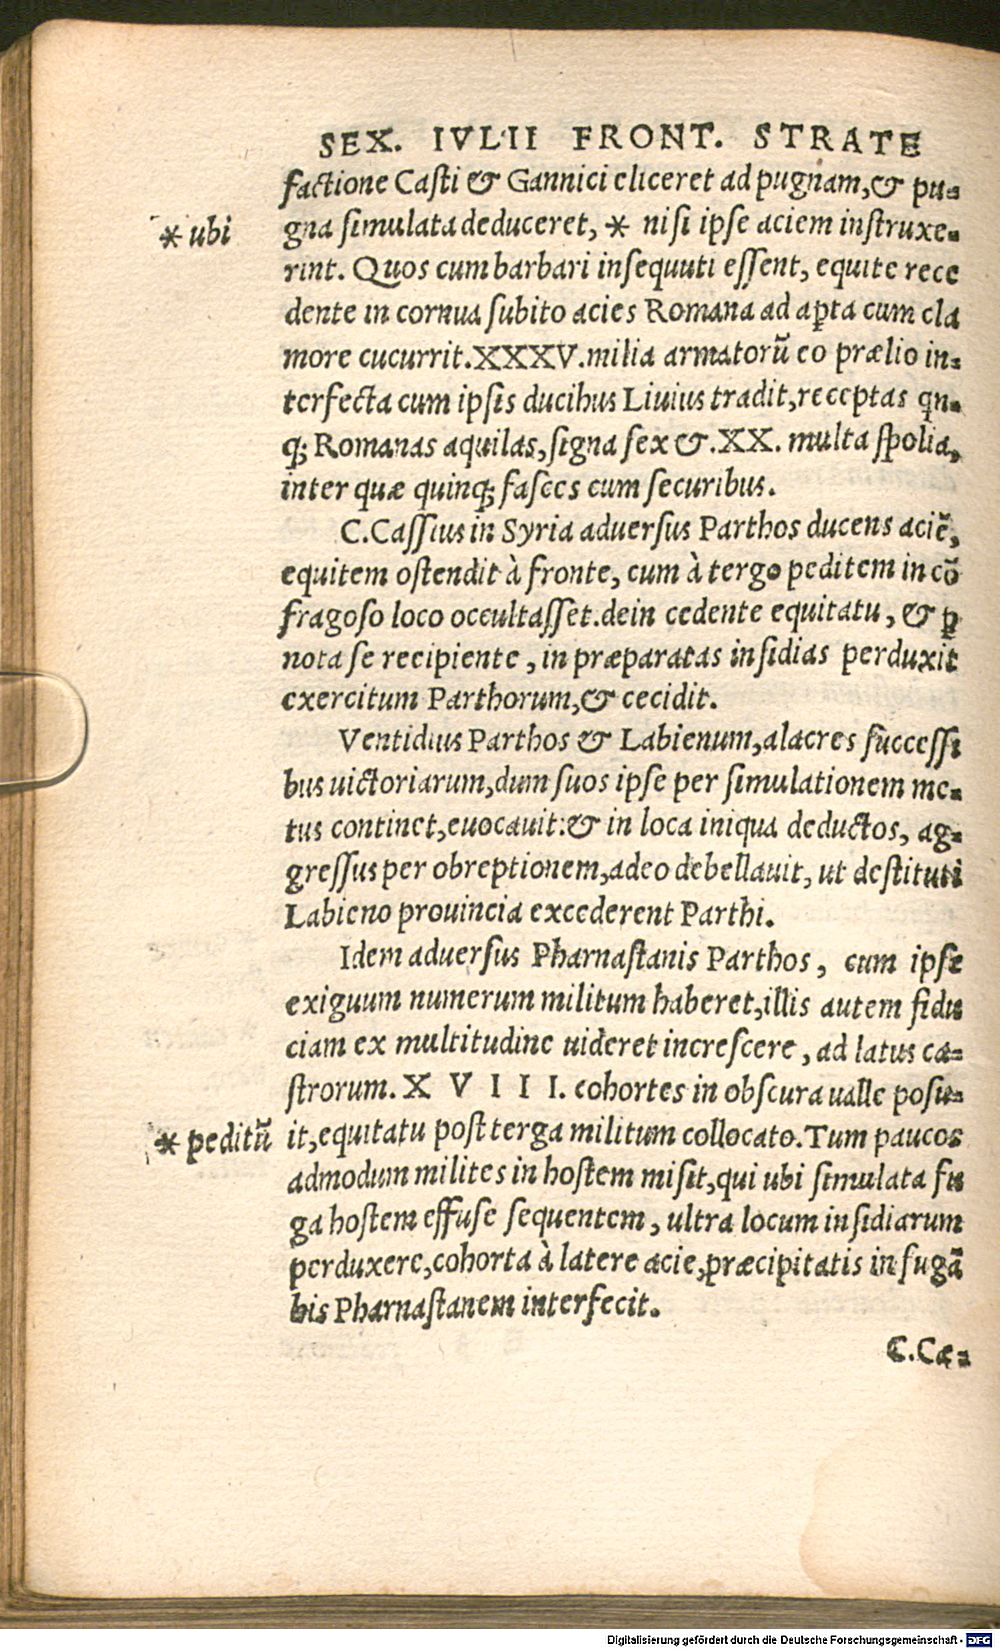 SEX. IVLII FRONT. STRATE
factione Casti & Gannici eliceret ad pugnam, & pu-
* ubi
gna simulata deduceret, * nisi ipse aciem instruxe-
rint. Quos cum barbari insequuti essent, equite rece
dente in cornua subito acies Romana ad aꝑta cum cla
more cucurrit. XXXV. milia armatorũ eo prælio in-
terfecta cum ipsis ducibus Liuius tradit, receptas qn-
q; Romanas aquilas, signa sex &. XX. multa spolia,
inter quæ quinq; fasces cum securibus.
C. Cassius in Syria aduersus Parthos ducens aciẽ,
equitem ostendit à fronte, cum à tergo peditem in cõ
fragoso loco occultasset. dein cedente equitatu, & ꝑ
nota se recipiente, in præparatas insidias perduxit
exercitum Parthorum, & cecidit.
Ventidius Parthos & Labienum, alacres successi
bus uictoriarum, dum suos ipse per simulationem me-
tus continet, euocauit: & in loca iniqua deductos, ag-
gressus per obreptionem, adeo debellauit, ut destituti
Labieno prouincia excederent Parthi.
Idem aduersus Pharnastanis Parthos, cum ipse
exiguum numerum militum haberet, illis autem fidu
ciam ex multitudine uideret increscere, ad latus ca-
strorum. X V I I I. cohortes in obscura ualle posu-
* peditũ
it, equitatu post terga militum collocato. Tum paucos
admodum milites in hostem misit, qui ubi simulata fu
ga hostem effuse sequentem, ultra locum insidiarum
perduxere, cohorta à latere acie, præcipitatis in fugã
his Pharnastanem interfecit.
C. Cæ-
Digitalisierung gefördert durch die Deutsche Forschungsgemeinschaft - DFG